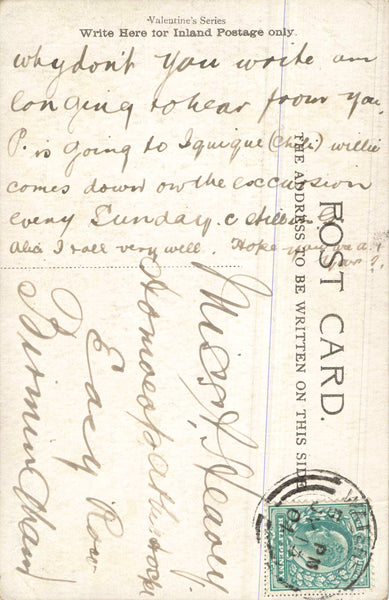 Valentine's Series
Write Here for Inland Postage only.
why don't you write am
longing to hear from you,
P. is going to Iquique (Chili) willie
comes down on the excursion
every Sunday. c
Alic I roll very well. Hope you
POST CARD.
THE ADDRESS TO BE WRITTEN ON THIS SIDE
Miss H. Heavey
Homoeopathic
Easy Row
Birmingham
HALF PENNY
PM